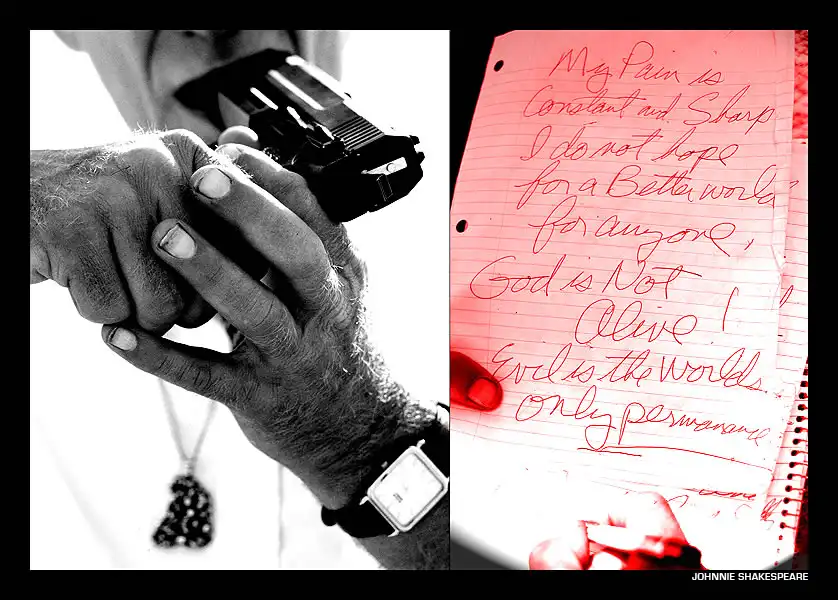 My Pain is
Constant and Sharp
I do not hope
for a Better world
for anyone,
God is Not
Alive!
Evil is the Worlds
only permanance
JOHNNIE SHAKESPEARE